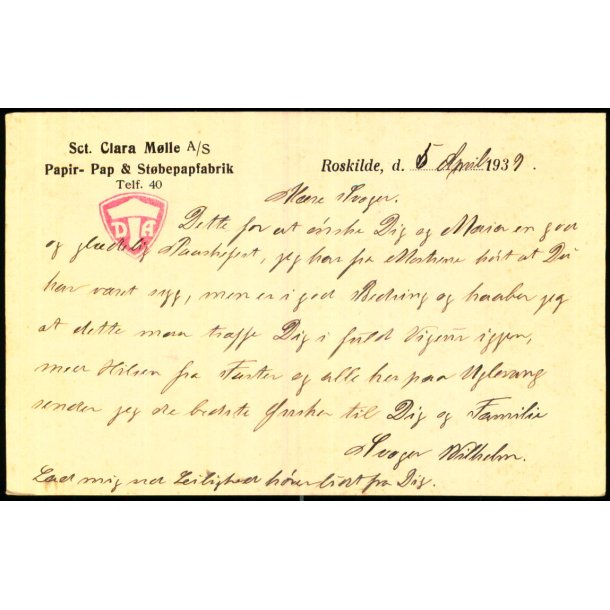 Sct. Clara Mølle A/S
Papir- Pap & Støbepapfabrik
Telf. 40
Roskilde, d. 5 April 1939.
D A
Kære Svoger.
Dette for at ønske Dig og Maria en god
og glædelig Paaskefest, jeg har fra hørt at Du
har været syg, men er i god Bedring og haaber jeg
at dette maa træffe Dig i fuld Vigeur iggen,
med Hilsen fra Faster og alle her paa Uglevang
sender jeg de bedste Ønsker til Dig og Familie
Svoger Wilhelm.
Lad mig ved Leilighed høre lidt fra Dig.